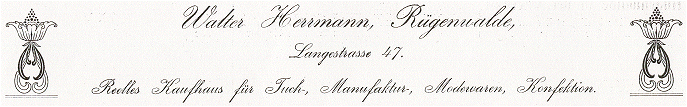 Walter Herrmann, Rügenwalde,
Langestrasse 47.
Reelles Kaufhaus für Tuch-, Manufaktur-, Modewaren, Konfektion.